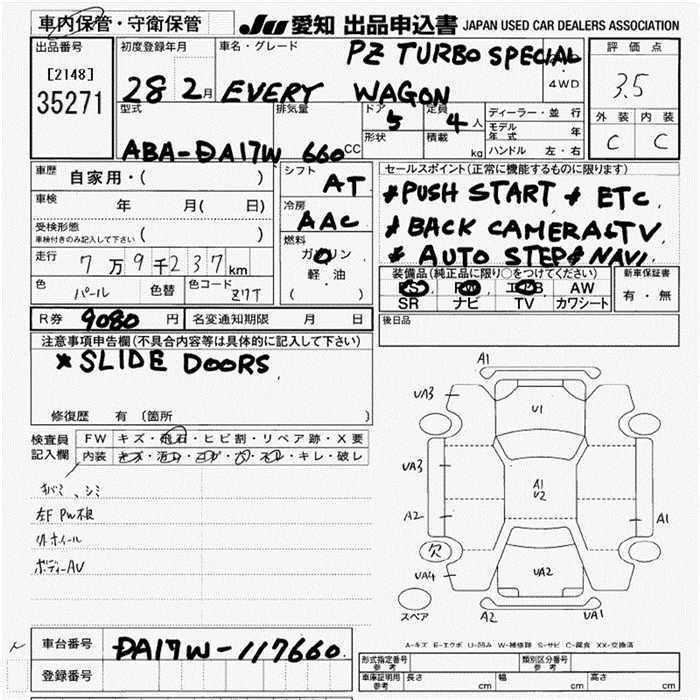 車内保管・守衛保管
JU 愛知 出品申込書 JAPAN USED CAR DEALERS ASSOCIATION
出品番号
[2148]
35271
初度登録年月
28 2月
車名・グレード
PZ TURBO SPECIAL
EVERY WAGON
・
4WD
評価点
3.5
外装 内装
C C
型式
ABA-DA17W
排気量
660 CC
ドア
5
定員
4人
形状
積載
kg
ディーラー・並行
モデル年式 年
ハンドル 左・右
車歴 自家用・( )
車検 年 月( 日)
受検形態
車検付きのみ記入して下さい ( )
走行 7万9千237km
色 パール 色替 色コード Z7T
シフト AT
冷房 AAC
燃料
ガソリン
軽・油
( )
セールスポイント(正常に機能するものに限ります)
*PUSH START * ETC
*BACK CAMERA&TV
* AUTO STEP & NAVI
装備品(純正品に限り○をつけてください)
PS PW エアB AW
SR ナビ TV カワシート
新車保証書
有・無
R券 9080 円 名変通知期限 月 日
後日品
注意事項申告欄(不具合内容等は具体的に記入して下さい)
*SLIDE DOORS
修復歴 有 (箇所 )
検査員記入欄
FW キズ・飛石・ヒビ割・リペア跡・X要
内装 キズ・汚れ・コゲ・穴・スレ・キレ・破レ
キバミ、シミ
左F PW不良
外ホイール
ボディーAU
A1
UA3
U1
UA3
A1
U2
A2
A1
欠
UA4
UA2
スペア
A2
UA1
A-キズ E-エクボ U-凹み W-補修跡 S-サビ C-腐食 XX-交換済
車台番号 DA17W-117660
登録番号
形式指定番号 参考
類別区分番号 参考
車庫証明用 参考 長さ cm 幅 cm 高さ cm